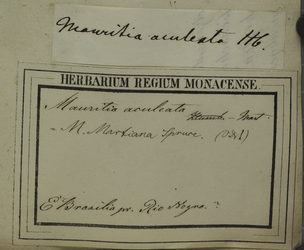 Mauritia aculeata Hb.
HERBARIUM REGIUM MONACENSE.
Mauritia aculeata
Humb. - Mart.
= M. Martiana Spruce.
E Brasilia pr. Rio Negro.